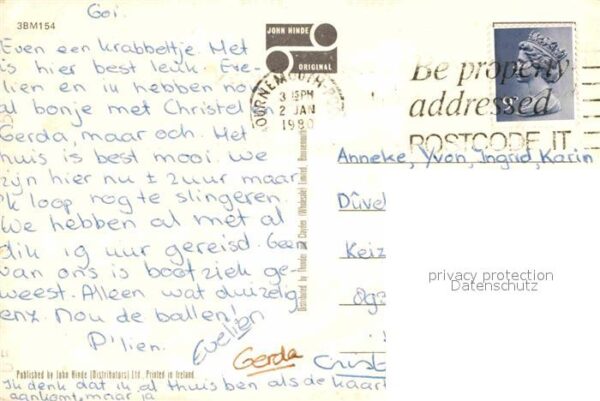 3BM154
Goi.
Even een krabbeltje. Met
is hier best leuk. Eve-
lien en ik hebben nou
al bonje met Christel en
Gerda, maar och. Het
huis is best mooi. We
zijn hier nu ± 2 uur maar
'k loop nog te slingeren.
We hebben al met al
dik 19 uur gereisd. Geen
van ons is bootziek ge-
weest. Alleen wat duizelig
enz. Nou de ballen!
P'lien.
Evelien
Gerda
Christ
Published by John Hinde (Distributors) Ltd., Printed in Ireland
Ik denk dat ik al thuis ben als de kaart
aankomt, maar ja
JOHN HINDE
ORIGINAL
BOURNEMOUTH
3 15PM
2 JAN
1980
Be properly
addressed
POSTCODE IT
Distributed by Thunder and Clayden (Wholesale) Limited, Bournemouth
Anneke, Yvon, Ingrid, Karin
Düvel
Keiz
privacy protection
Datenschutz